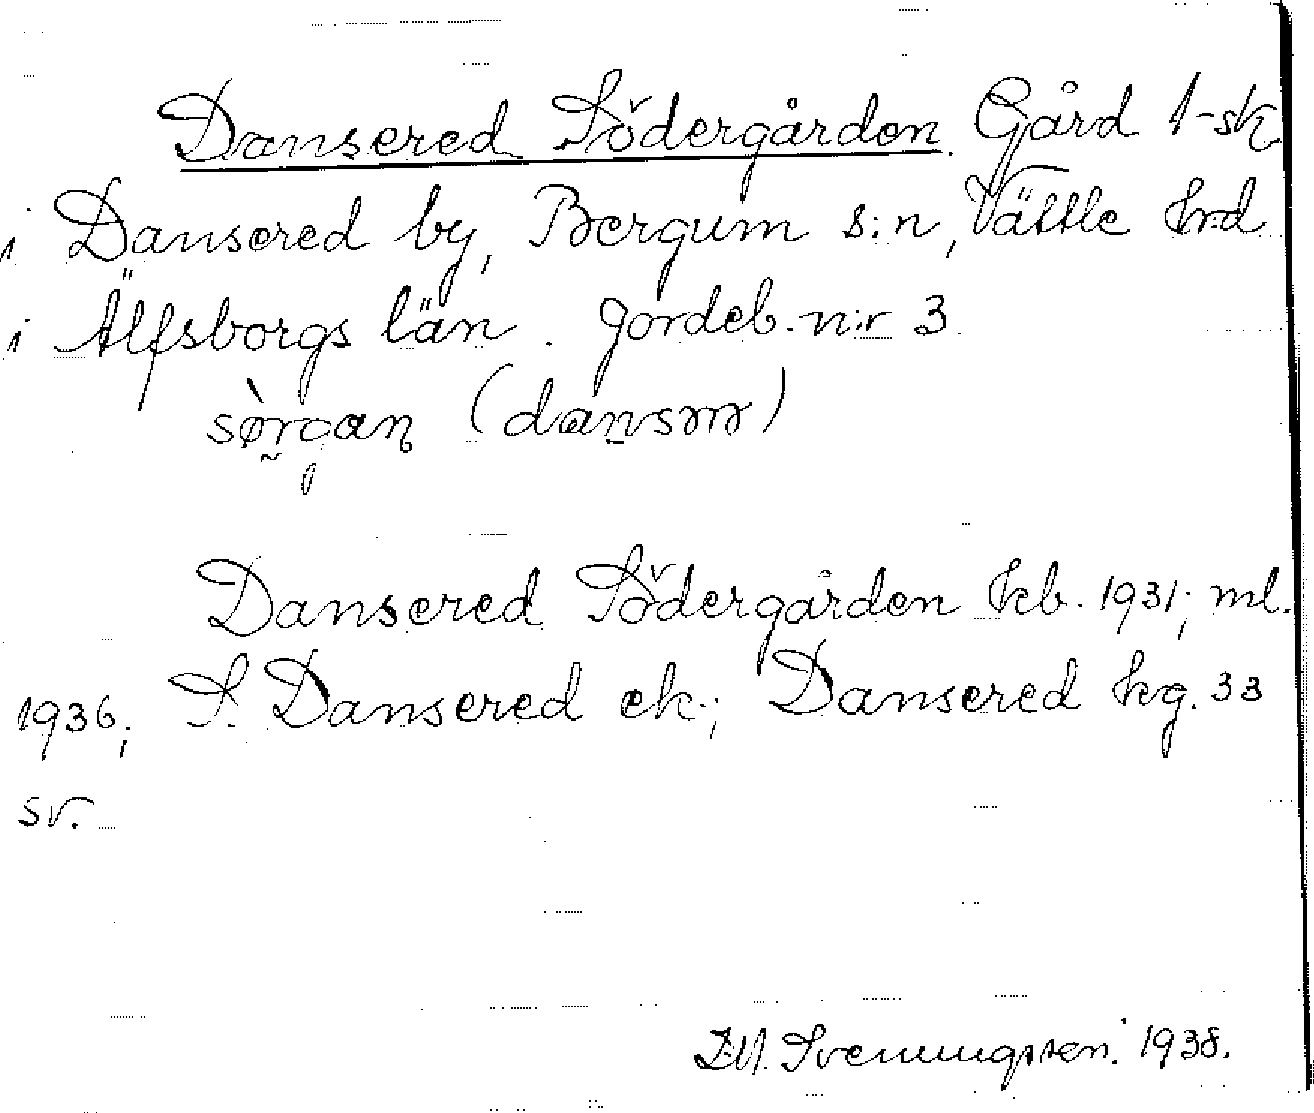 Dansered Södergården. Gård 1-sk
i Dansered by, Bergum s:n, Vättle hrd
i Älfsborgs län. Jordeb. n:r 3.
sø̀rgan (dansrɷr)
Dansered Södergården kb. 1931; ml.
1936; S. Dansered ek.; Dansered kg. 33
sv.
Svenungsson. 1938.